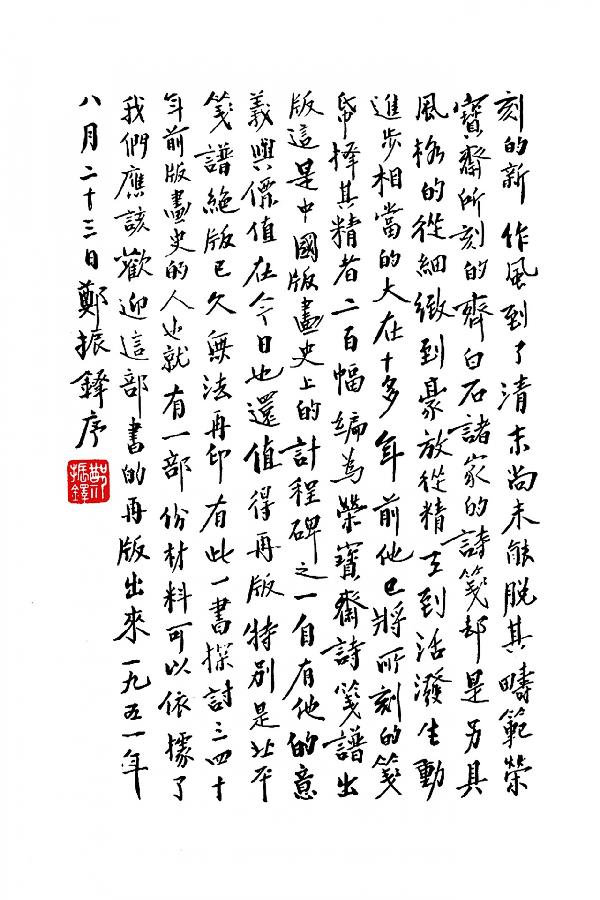 刻的新作風到了清末尚未能脫其疇範榮
寶齋所刻的齊白石諸家的詩箋却是另具
風格的從細緻到豪放從精工到活潑生動
進步相當的大在十多年前他已將所刻的箋
帋擇其精者二百幅編為榮寶齋詩箋譜出
版這是中國版畫史上的計程碑之一自有他的意
義與價值在今日也還值得再版特別是北平
箋譜絕版已久無法再印有此一書探討三四十
年前版畫史的人也就有一部份材料可以依據了
我們應該歡迎這部書的再版出來一九五一年
八月二十三日鄭振鐸序
鄭振鐸